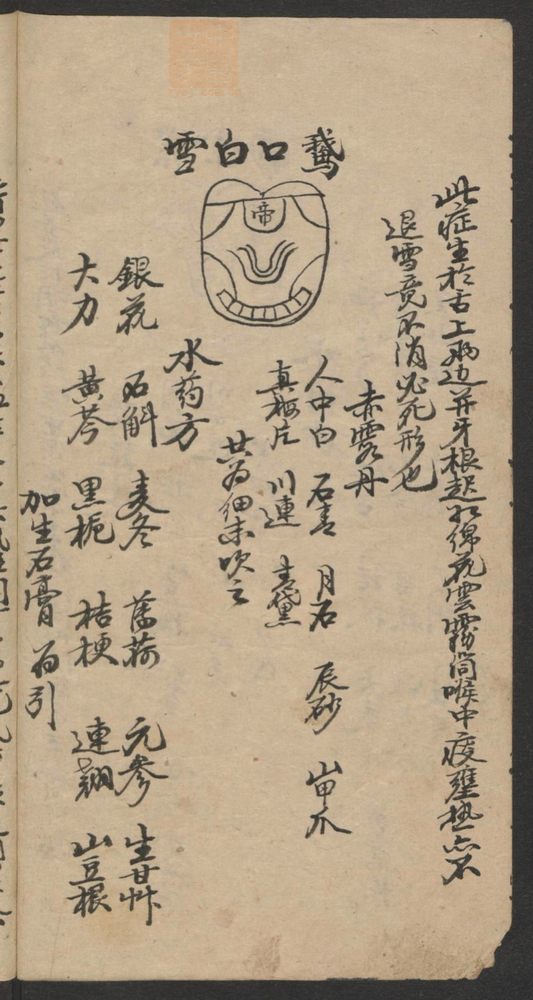 鵝口白雪
帝
此症生於舌上両边并牙根起如綿花雲霧筒喉中痰壅热亦不
退雪竟不消必死形也
赤霓丹
人中白 石青 月石 辰砂 山甲爪
真梅片 川連 青黛
共为细末吹之
水药方
銀花 石斛 麦冬 薄荷 元參 生甘艸
大力 黄芩 黑栀 桔梗 連翹 山豆根
加生石膏为引